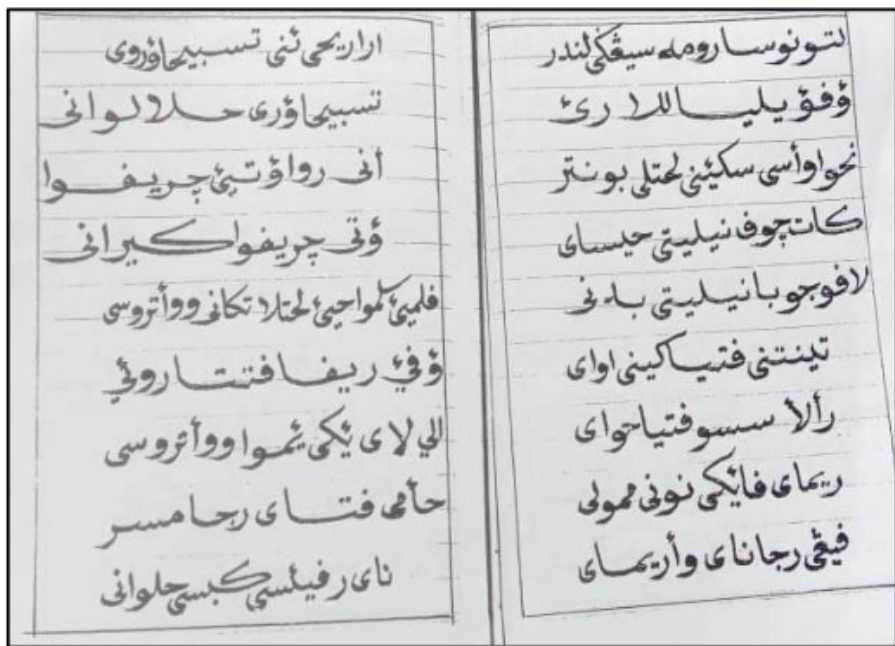 لتونوسارومه سيڤكي لندر
ؤفؤيليا للا رئ
نحواوأسى سكيئنى لحتلى بونتر
كات چوف نيليتى حيساى
لافوجوبانيليتى بادنى
تينتنى فتياكينى اواى
رألأ سسو فتياحواى
ريماى فائكى نونى ممولى
فيڤى رجاناى وأريماى
اراريحى ئنى تسبيحاؤروى
تسبيحاؤرى حلالوانى
أنى رواؤتيئ چريفوا
ؤتى چريفواكيرانى
فلميئ كمواحيئ لحتلا تكانى ووأتروسى
ؤفئ ريفا فتتاروئي
اللي لاى يكى يموا ووأتروسى
حأمى فتاى رجامسر
ناى رفيئسى كبسى حلوانى